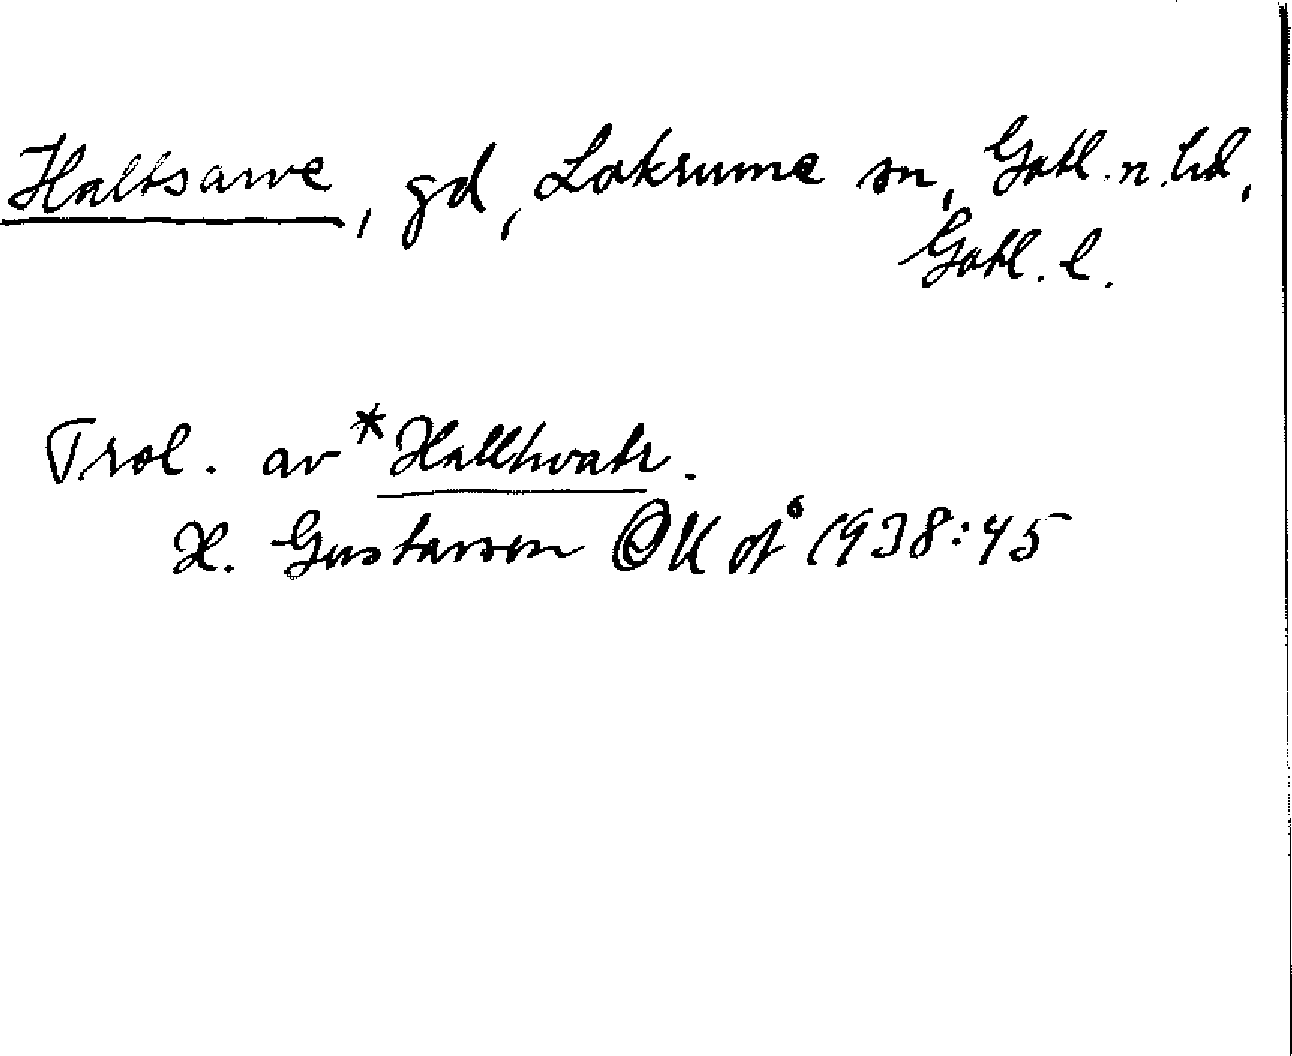 Haltsarve, gd, Lokrume sn, Gotl. n. hd,
Gotl. l.
Trol. av *Hallhvatr.
H. Gustavson GK på 1938:45